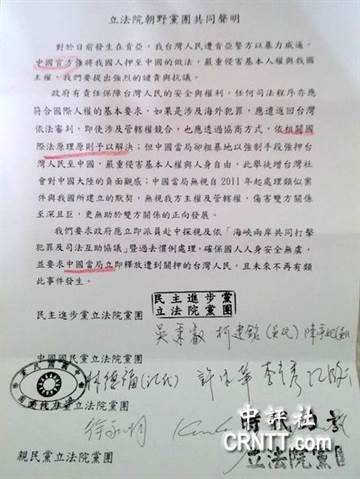 立法院朝野黨團共同聲明
對於日前發生在肯亞，我台灣人民遭肯亞警方以暴力威逼，
中國官方強將我國人押至中國的做法，嚴重侵害基本人權與我國
主權，我們要提出強烈的譴責與抗議。
政府有責任保障台灣人民的安全與權利，任何司法程序亦應
符合國際人權的基本要求，如果是涉及海外犯罪，應遣返回台灣
依法審判，即使涉及管轄競合，也應透過協商方式，依相關國
際法原理原則予以解決；但中國當局卻粗暴地以強制手段強押台
灣人民至中國，嚴重侵害基本人權與人身自由，此舉徒增台灣社
會對中國大陸的負面觀感；中國當局無視自2011年起處理類似案
件與我國所建立的默契，無視我方主權及管轄權，傷害雙方關係
至深且巨，更無助於雙方關係的正向發展。
我們要求政府應立即派員赴中探視及依「海峽兩岸共同打擊
犯罪及司法互助協議」暨過去慣例處理，確保國人人身安全無虞，
並要求中國當局立即釋放遭到關押的台灣人民，且未來不再有類
此事件發生。
民主進步黨
立法院黨團
民主進步黨立法院黨團
吳秉叡 柯建銘
中國國民黨立法院黨團
林德福
徐永明
時代力量
立法院黨
親民黨立法院黨團
中評社
CRNTT.com